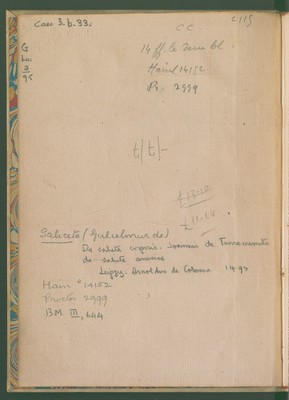 Case 3.b.33.
C C
G
3
95
14 ff. le 2eme bl.
Hain 14152
Pr. 2999
t/t/-
Saliceto (Gulielmus de)
De salute corporis. Joannes de Turrecremata
de salute animae
Leipzig: Arnoldus de Colonia 1495
Hain *14152
Proctor 2999
B.M. III, 644